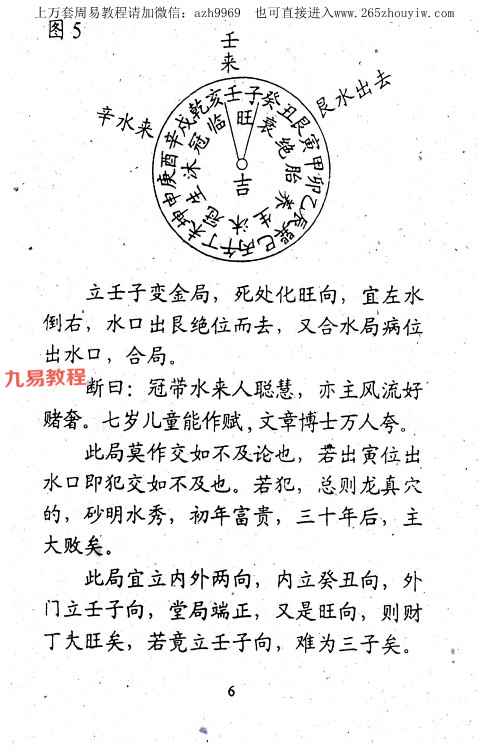 上万套周易教程请加微信：azh9969 也可直接进入www.265zhouyiw.com
图5
壬
来
辛水来
艮水出去
乾亥壬子癸丑艮寅甲卯乙辰巽巳丙午丁未坤申庚酉辛戌
临旺衰绝胎养生沐冠
生沐冠
吉
立壬子变金局，死处化旺向，宜左水
倒右，水口出艮绝位而去，又合水局病位
出水口，合局。
九易教程
断曰：冠带水来人聪慧，亦主风流好
赌奢。七岁儿童能作赋，文章博士万人夸。
此局莫作交如不及论也，若出寅位出
水口即犯交如不及也。若犯，总则龙真穴
的，砂明水秀，初年富贵，三十年后，主
大败矣。
此局宜立内外两向，内立癸丑向，外
门立壬子向，堂局端正，又是旺向，则财
丁大旺矣，若竟立壬子向，难为三子矣。
6